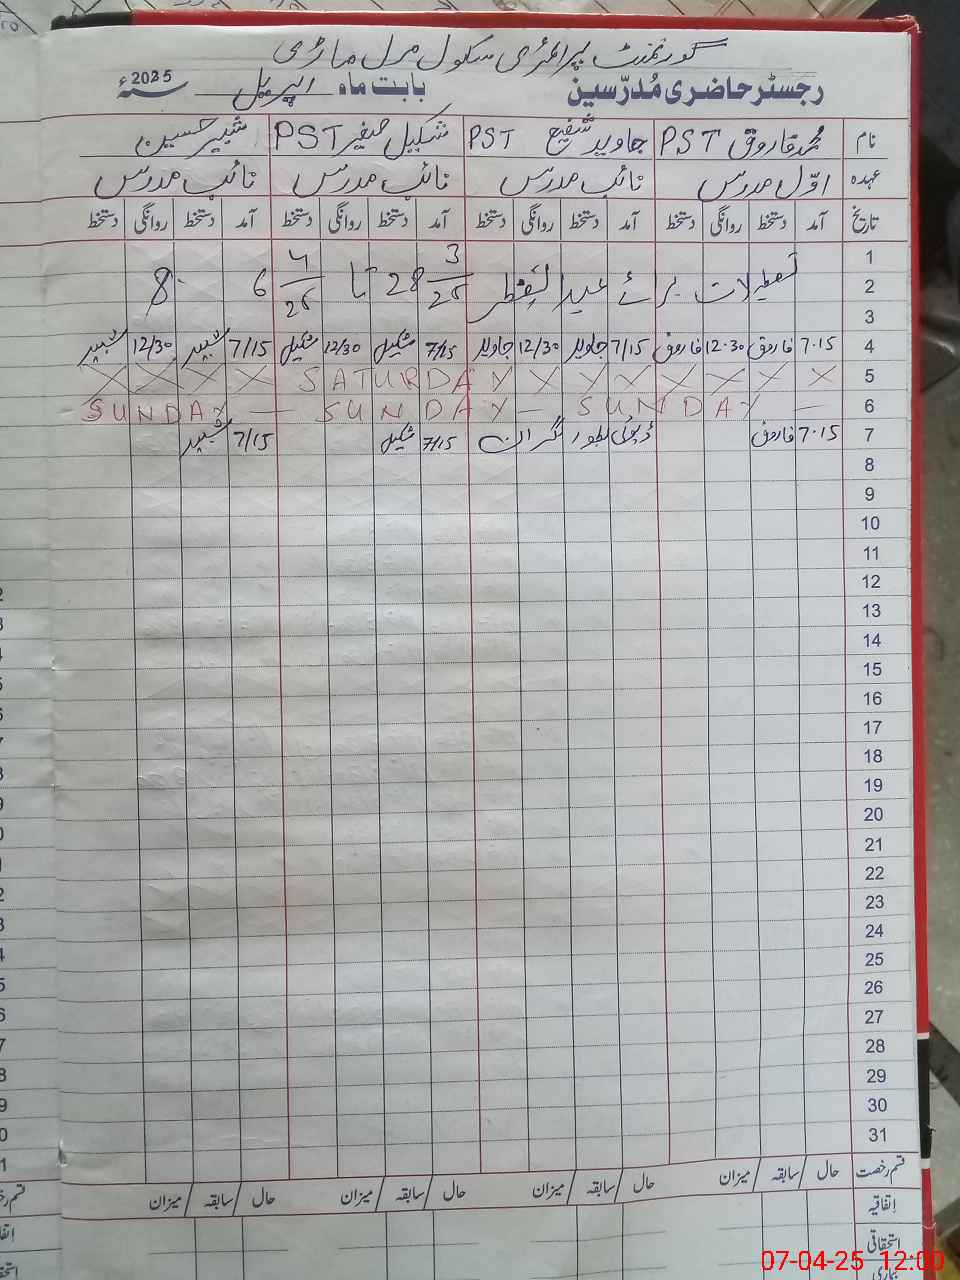 گورنمنٹ پرائمری سکول مرل ماڑی
رجسٹر حاضری مُدرّسین بابت ماہ اپریل سنہ 2025ء
نام محمد فاروق PST جاوید شفیع PST شکیل صغیر PST شبیر حسین
عہدہ اوّل مدرس نائب مدرس نائب مدرس نائب مدرس
تاریخ آمد دستخط روانگی دستخط آمد دستخط روانگی دستخط آمد دستخط روانگی دستخط آمد دستخط روانگی دستخط
1
2 تعطیلات برائے عید الفطر 28 3/25 تا 4/25 6 8
3
4 7.15 فاروق 12.30 فاروق 7/15 جاوید 12/30 جاوید 7/15 شکیل 12/30 شکیل 7/15 شبیر 12/30 شبیر
5 X X X X SATURDAY X X X X X X X
6 SUNDAY — SUNDAY — SUNDAY —
7 7.15 فاروق ڈیوٹی بطور نگران 7/15 شکیل 7/15 شبیر
8
9
10
11
12
13
14
15
16
17
18
19
20
21
22
23
24
25
26
27
28
29
30
31
قسم رخصت حال / سابقہ / میزان حال / سابقہ / میزان حال / سابقہ / میزان حال / سابقہ / میزان
اتفاقیہ
استحقاقی
بیماری
07-04-25 12:00